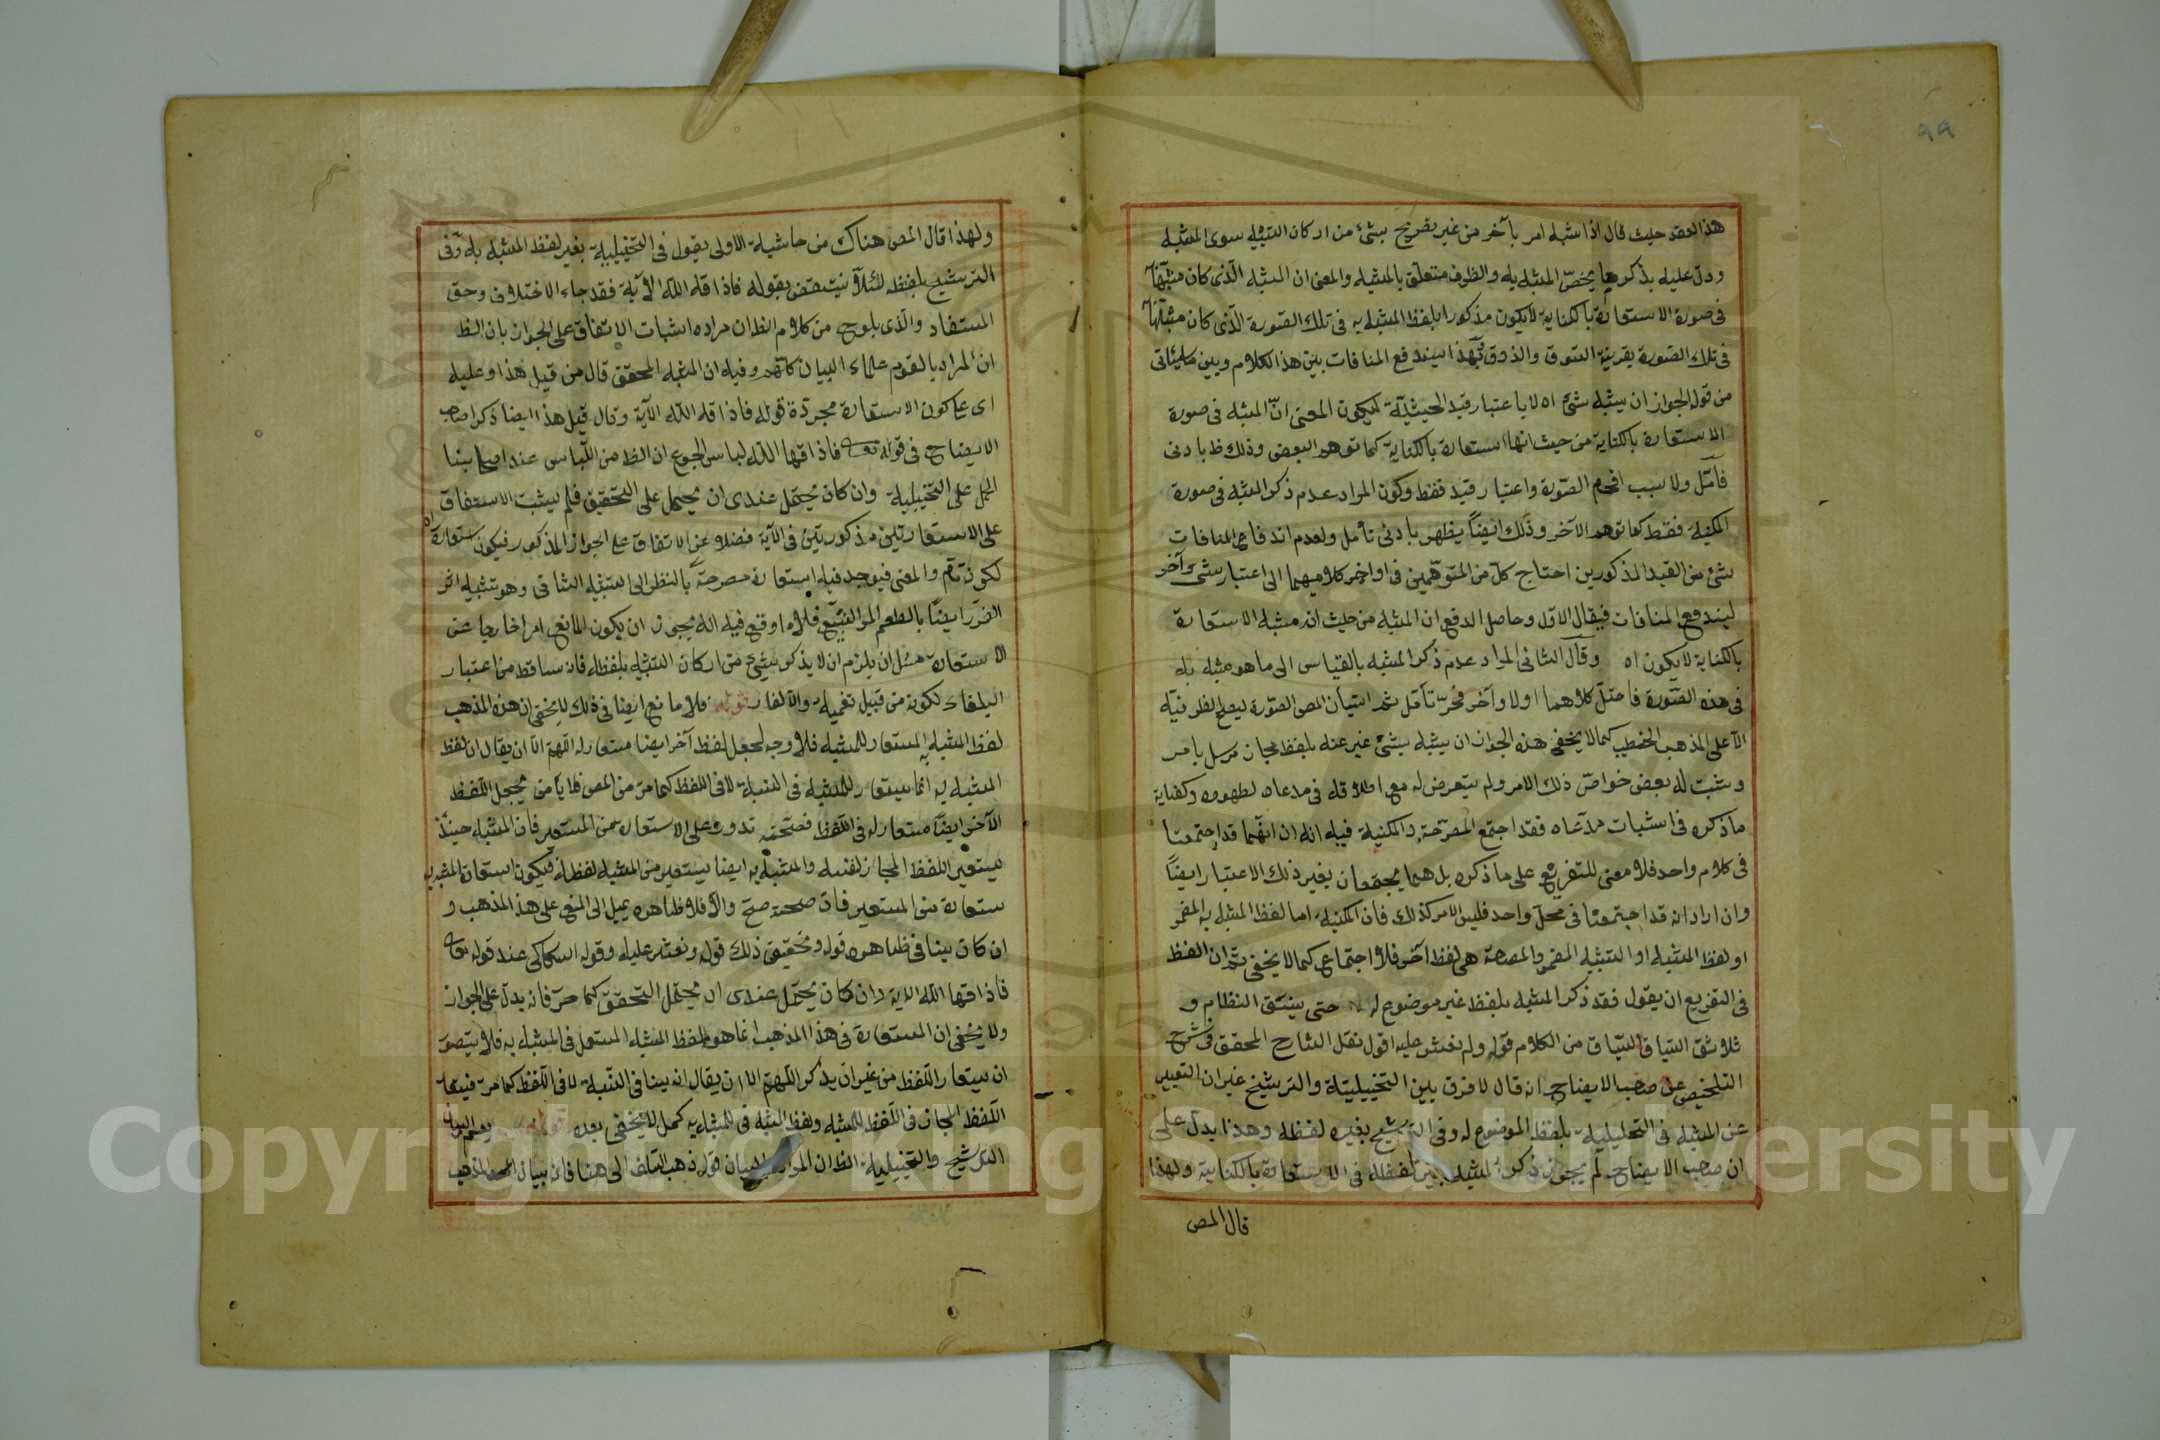 ٩٩
هذا العقد حيث قال اذا شبه امر بآخر من غير تصريح بشئ من اركان التشبيه سوى المشبه
ودل عليه بذكر ما يخص المشبه به والظرف متعلق بالمشبه والمعنى ان المشبه الذى كان مشبها
فى صورة الاستعارة بالكناية لا يكون مذكورا بلفظ المشبه به فى تلك الصورة الذى كان مشبها
فى تلك الصورة بقرينة السوق والذوق فبهذا يندفع المنافات بين هذا الكلام وبين ما سيئاتى
من قوله الجواز ان يشبه شئ اه لا باعتبار قيد الحيثية ليكون المعنى ان المشبه فى صورة
الاستعارة بالكناية من حيث انها استعارة بالكناية كما توهم البعض وذلك ظ بادنى
تأمل ولا بسبب اقحام الصورة واعتبار قيد فقط وكون المراد عدم ذكر المشبه فى صورة
المكنية فقط كما توهم الآخر وذلك ايضا يظهر بادنى تأمل ولعدم اندفاع المنافات
بشئ من القيد المذكورين احتاج كل من المتوهمين فى اواخر كلاميهما الى اعتبار شئ آخر
ليندفع المنافات فيقال الاول وحاصل الدفع ان المشبه من حيث انه مشبه الاستعارة
بالكناية لا يكون اه وقال الثانى المراد عدم ذكر المشبه بالقياس الى ما هو مشبه به
فى هذه الصورة فاختل كلاهما اولا وآخر فخر تأمل ثم اتيان المص الصورة ليصلح الظرفية
الا على المذهب الخطيب كما لا يخفى هذه الجواز ان يشبه بشئ غير عنه بلفظ مجاز مرسل بامر
ويثبت له بعض خواص ذلك الامر ولم يتعرض له مع اطلاقه فى مدعاه لظهوره وكفاية
ما ذكره فى اثبات مدعاه فقد اجتمع المصرحة والمكنية فيه انه ان انهما قد اجتمعتا
فى كلام واحد فلا معنى للتفريع على ما ذكره بل هما يجتمعان بغير ذلك الاعتبار ايضا
وان اراد انه قد اجتمعتا فى محل واحد فليس الامر كذلك فان المكنية اما لفظ المشبه به المضمر
او لفظ المشبه او التشبيه المضمر والمصرحة هى لفظ آخر فلا اجتماع كما لا يخفى ثم ان الظ
فى التفريع ان يقول فقد ذكر المشبه بلفظ غير موضوع له حتى ينسق النظام و
تلاشق السياق السياق من الكلام قوله ولم نعثر عليه اقول نقل الشارح المحقق فى شرح
التلخيص عن صاحب الايضاح انه قال لا فرق بين التخييلية والترشيح غير ان التعبير
عن المشبه فى التخييلية بلفظ الموضوع له وفى الترشيح بغيره لفظه وهذا يدل على
ان صاحب الايضاح لم يجوز ذكر المشبه بغير لفظه فى الاستعارة بالكناية ولهذا
قال المص
ولهذا قال المص هناك من حاشية الاولى يقول فى التخييلية بغير لفظ المشبه به وفى
الترشيح بلفظه لئلا ينتقض بقوله فاذاقه الله الآية فقد جاء الاختلاف وحق
المستفاد والذى يلوح من كلام الظ ان مراده اثبات الاتفاق على الجواز بان الظ
ان المراد بالقوم علماء البيان كافة وفيه ان المشبه المحقق قال من قبل هذا وعليه
اى على كون الاستعارة مجردة قوله فاذاقه الله الآية وقال قبل هذا ايضا ذكر صاحب
الايضاح فى قوله تعه فاذاقها الله لباس الجوع ان الظ من اللباس عند اصحابنا
الحمل على التخييلية وان كان يحتمل عندى ان يحمل على التحقيق فلم يثبت الاتفاق
على الاستعارتين مذكورتين فى الآية فضلا عن الاتفاق على الجواز المذكور فيكون استعارة اه
لكونه تام والمعنى فيوجد فيه استعارة مصرحة بالنظر الى التشبيه الثانى وهو تشبيه اثر
الضرر ايضا بالطعم المر البشع فلا وما وقع فيه انه يجوز ان يكون المانع امرا خارجا عن
الاستعارة مثل ان يلزم ان لا يذكر شئ من اركان التشبيه بلفظه فانه ساقط من اعتبار
البلغاء لكونه من قبيل تعمية والالغاز قوله فلا مانع ايضا فى ذلك لا يخفى ان هذه المذهب
لفظ المشبه به المستعار للمشبه فلا وجه لجعل لفظ آخر ايضا مستعار له اللهم الا ان يقال ان لفظ
المشبه به انما يستعار للمشبه فى النسبة لا فى اللفظ كما مر من المص فلا بأس من يجعل اللفظ
الآخر ايضا مستعار له فى اللفظ فصحته تدور على الاستعارة من المستعير فان المشبه حينئذ
يستعير اللفظ المجاز لنفسه والمشبه به ايضا يستعير من المشبه لفظه فيكون استعارة المشبه به
ستعارة من المستعير فان صحته صح والا فلا ظاهره يميل الى المنع على هذا المذهب و
ان كان ينافى ظاهره قوله وتحقيق ذلك قوله ونعثر عليه وقوله السكاكى عند قوله تعه
فاذاقها الله الآية وان كان يحتمل عندى ان يحتمل التحقق كما صر فانه يدل على الجواز
ولا يخفى ان المستعارة فى هذا المذهب انما هو لفظ المشبه المستعمل فى المشبه به فلا يتصور
ان يستعار اللفظ من غير ان يذكر اللهم الا ان يقال انه ينافى النسبة لا فى اللفظ كما مر فيستعار
اللفظ المجاز فى اللفظ للمشبه ولفظ المشبه فى للمشبه به كمل لا يخفى بعده
الترشيح والتخييلية الظ ان المراد البيان قوله ذهب السلف الى هنا فانه بيان المذهب
Copyright © King Saud University